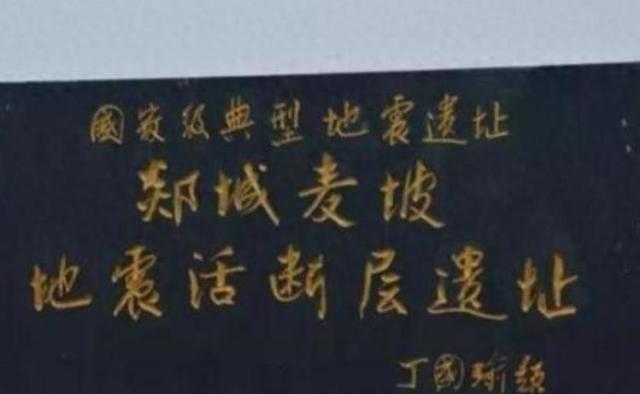 國家级典型地震遗址
郯城麦坡
地震活断层遗址
丁國瑜題